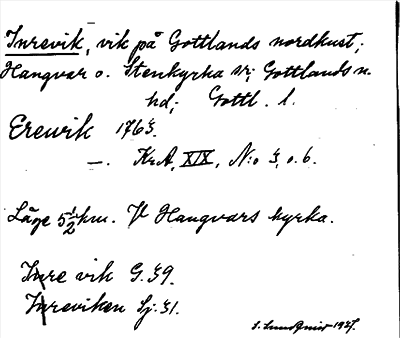 Inrevik, vik på Gottlands nordkust;
Hangvar o. Stenkyrka sr; Gottlands n.
hd; Gottl. l.
Erevik 1763.
—. Kr.A, XIX, N:o 3, o. 6.
Läge 5 1/2 km. V Hangvars kyrka.
Inre vik G. 39.
Inreviken Sj. 31.
1927.